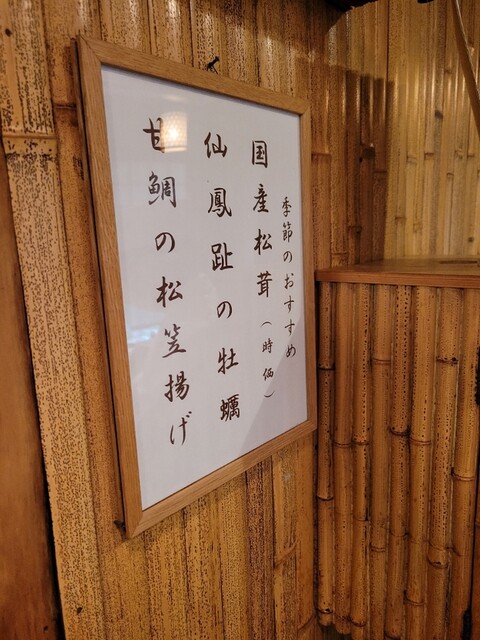 季節のおすすめ
国産松茸（時価）
仙鳳趾の牡蠣
甘鯛の松笠揚げ